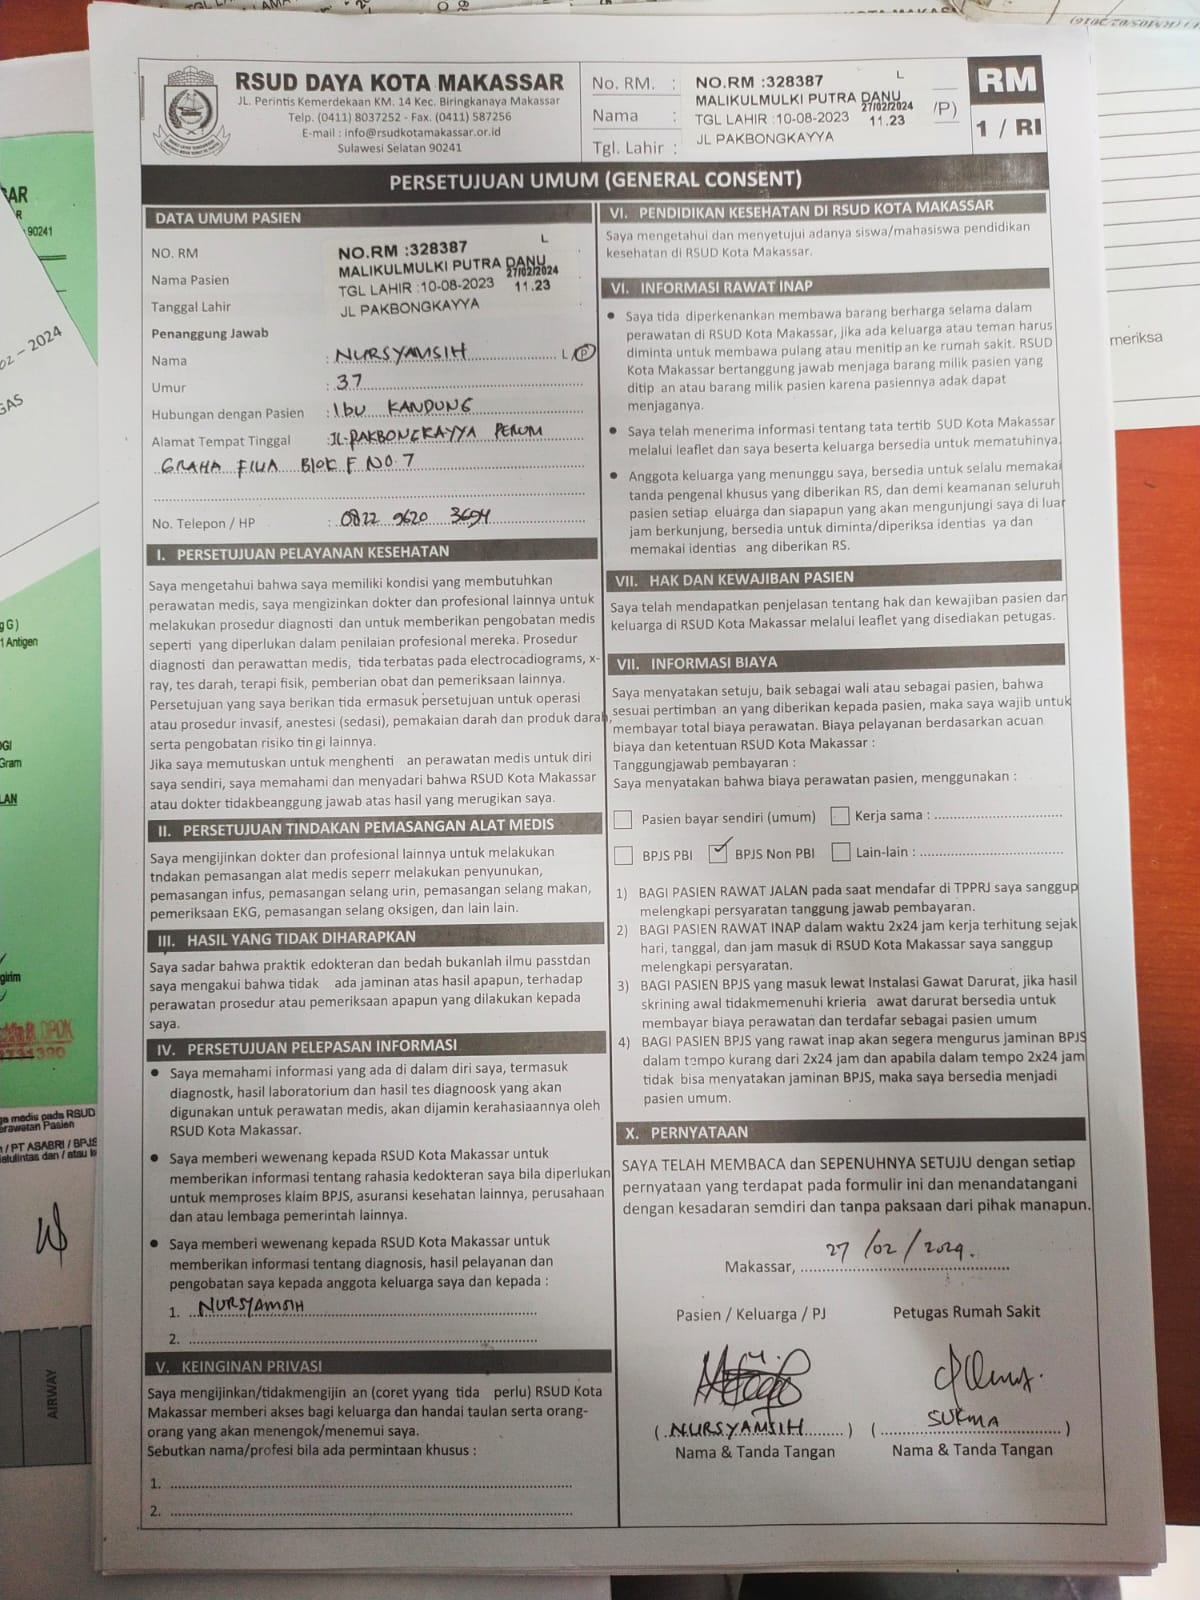 RSUD DAYA KOTA MAKASSAR
JL. Perintis Kemerdekaan KM. 14 Kec. Biringkanaya Makassar
Telp. (0411) 8037252 - Fax. (0411) 587256
E-mail : info@rsudkotamakassar.or.id
Sulawesi Selatan 90241
No. RM. :
Nama :
Tgl. Lahir :
NO.RM :328387 L
MALIKULMULKI PUTRA DANU
27/02/2024
TGL LAHIR :10-08-2023 11.23
JL PAKBONGKAYYA
/P)
RM
1 / RI
PERSETUJUAN UMUM (GENERAL CONSENT)
DATA UMUM PASIEN
NO. RM
Nama Pasien
Tanggal Lahir
NO.RM :328387 L
MALIKULMULKI PUTRA DANU
27/02/2024
TGL LAHIR :10-08-2023 11.23
JL PAKBONGKAYYA
Penanggung Jawab
Nama : NURSYAMSIH L P
Umur : 37
Hubungan dengan Pasien : IBU KANDUNG
Alamat Tempat Tinggal : JL-PAKBONGKAYYA PERUM
GRAHA FILIA BLOK F NO.7
No. Telepon / HP : 0822 9620 3694
I. PERSETUJUAN PELAYANAN KESEHATAN
Saya mengetahui bahwa saya memiliki kondisi yang membutuhkan
perawatan medis, saya mengizinkan dokter dan profesional lainnya untuk
melakukan prosedur diagnosti dan untuk memberikan pengobatan medis
seperti yang diperlukan dalam penilaian profesional mereka. Prosedur
diagnosti dan perawattan medis, tida terbatas pada electrocadiograms, x-
ray, tes darah, terapi fisik, pemberian obat dan pemeriksaan lainnya.
Persetujuan yang saya berikan tida ermasuk persetujuan untuk operasi
atau prosedur invasif, anestesi (sedasi), pemakaian darah dan produk darah,
serta pengobatan risiko tin gi lainnya.
Jika saya memutuskan untuk menghenti an perawatan medis untuk diri
saya sendiri, saya memahami dan menyadari bahwa RSUD Kota Makassar
atau dokter tidakbeanggung jawab atas hasil yang merugikan saya.
II. PERSETUJUAN TINDAKAN PEMASANGAN ALAT MEDIS
Saya mengijinkan dokter dan profesional lainnya untuk melakukan
tndakan pemasangan alat medis seperr melakukan penyunukan,
pemasangan infus, pemasangan selang urin, pemasangan selang makan,
pemeriksaan EKG, pemasangan selang oksigen, dan lain lain.
III. HASIL YANG TIDAK DIHARAPKAN
Saya sadar bahwa praktik edokteran dan bedah bukanlah ilmu passtdan
saya mengakui bahwa tidak ada jaminan atas hasil apapun, terhadap
perawatan prosedur atau pemeriksaan apapun yang dilakukan kepada
saya.
IV. PERSETUJUAN PELEPASAN INFORMASI
• Saya memahami informasi yang ada di dalam diri saya, termasuk
diagnostk, hasil laboratorium dan hasil tes diagnoosk yang akan
digunakan untuk perawatan medis, akan dijamin kerahasiaannya oleh
RSUD Kota Makassar.
• Saya memberi wewenang kepada RSUD Kota Makassar untuk
memberikan informasi tentang rahasia kedokteran saya bila diperlukan
untuk memproses klaim BPJS, asuransi kesehatan lainnya, perusahaan
dan atau lembaga pemerintah lainnya.
• Saya memberi wewenang kepada RSUD Kota Makassar untuk
memberikan informasi tentang diagnosis, hasil pelayanan dan
pengobatan saya kepada anggota keluarga saya dan kepada :
1. NURSYAMSIH
2.
V. KEINGINAN PRIVASI
Saya mengijinkan/tidakmengijin an (coret yyang tida perlu) RSUD Kota
Makassar memberi akses bagi keluarga dan handai taulan serta orang-
orang yang akan menengok/menemui saya.
Sebutkan nama/profesi bila ada permintaan khusus :
1.
2.
VI. PENDIDIKAN KESEHATAN DI RSUD KOTA MAKASSAR
Saya mengetahui dan menyetujui adanya siswa/mahasiswa pendidikan
kesehatan di RSUD Kota Makassar.
VI. INFORMASI RAWAT INAP
• Saya tida diperkenankan membawa barang berharga selama dalam
perawatan di RSUD Kota Makassar, jika ada keluarga atau teman harus
diminta untuk membawa pulang atau menitip an ke rumah sakit. RSUD
Kota Makassar bertanggung jawab menjaga barang milik pasien yang
ditip an atau barang milik pasien karena pasiennya adak dapat
menjaganya.
• Saya telah menerima informasi tentang tata tertib SUD Kota Makassar
melalui leaflet dan saya beserta keluarga bersedia untuk mematuhinya.
• Anggota keluarga yang menunggu saya, bersedia untuk selalu memakai
tanda pengenal khusus yang diberikan RS, dan demi keamanan seluruh
pasien setiap eluarga dan siapapun yang akan mengunjungi saya di luar
jam berkunjung, bersedia untuk diminta/diperiksa identias ya dan
memakai identias ang diberikan RS.
VII. HAK DAN KEWAJIBAN PASIEN
Saya telah mendapatkan penjelasan tentang hak dan kewajiban pasien dan
keluarga di RSUD Kota Makassar melalui leaflet yang disediakan petugas.
VII. INFORMASI BIAYA
Saya menyatakan setuju, baik sebagai wali atau sebagai pasien, bahwa
sesuai pertimban an yang diberikan kepada pasien, maka saya wajib untuk
membayar total biaya perawatan. Biaya pelayanan berdasarkan acuan
biaya dan ketentuan RSUD Kota Makassar :
Tanggungjawab pembayaran :
Saya menyatakan bahwa biaya perawatan pasien, menggunakan :
Pasien bayar sendiri (umum) Kerja sama :
BPJS PBI ✓ BPJS Non PBI Lain-lain :
1) BAGI PASIEN RAWAT JALAN pada saat mendafar di TPPRJ saya sanggup
melengkapi persyaratan tanggung jawab pembayaran.
2) BAGI PASIEN RAWAT INAP dalam waktu 2x24 jam kerja terhitung sejak
hari, tanggal, dan jam masuk di RSUD Kota Makassar saya sanggup
melengkapi persyaratan.
3) BAGI PASIEN BPJS yang masuk lewat Instalasi Gawat Darurat, jika hasil
skrining awal tidakmemenuhi krieria awat darurat bersedia untuk
membayar biaya perawatan dan terdafar sebagai pasien umum
4) BAGI PASIEN BPJS yang rawat inap akan segera mengurus jaminan BPJS
dalam tempo kurang dari 2x24 jam dan apabila dalam tempo 2x24 jam
tidak bisa menyatakan jaminan BPJS, maka saya bersedia menjadi
pasien umum.
X. PERNYATAAN
SAYA TELAH MEMBACA dan SEPENUHNYA SETUJU dengan setiap
pernyataan yang terdapat pada formulir ini dan menandatangani
dengan kesadaran semdiri dan tanpa paksaan dari pihak manapun.
Makassar, 27/02/2024.
Pasien / Keluarga / PJ Petugas Rumah Sakit
( NURSYAMSIH ) ( SUKMA )
Nama & Tanda Tangan Nama & Tanda Tangan
90241
02 - 2024
1 Antigen
Gram
AIRWAY
meriksa